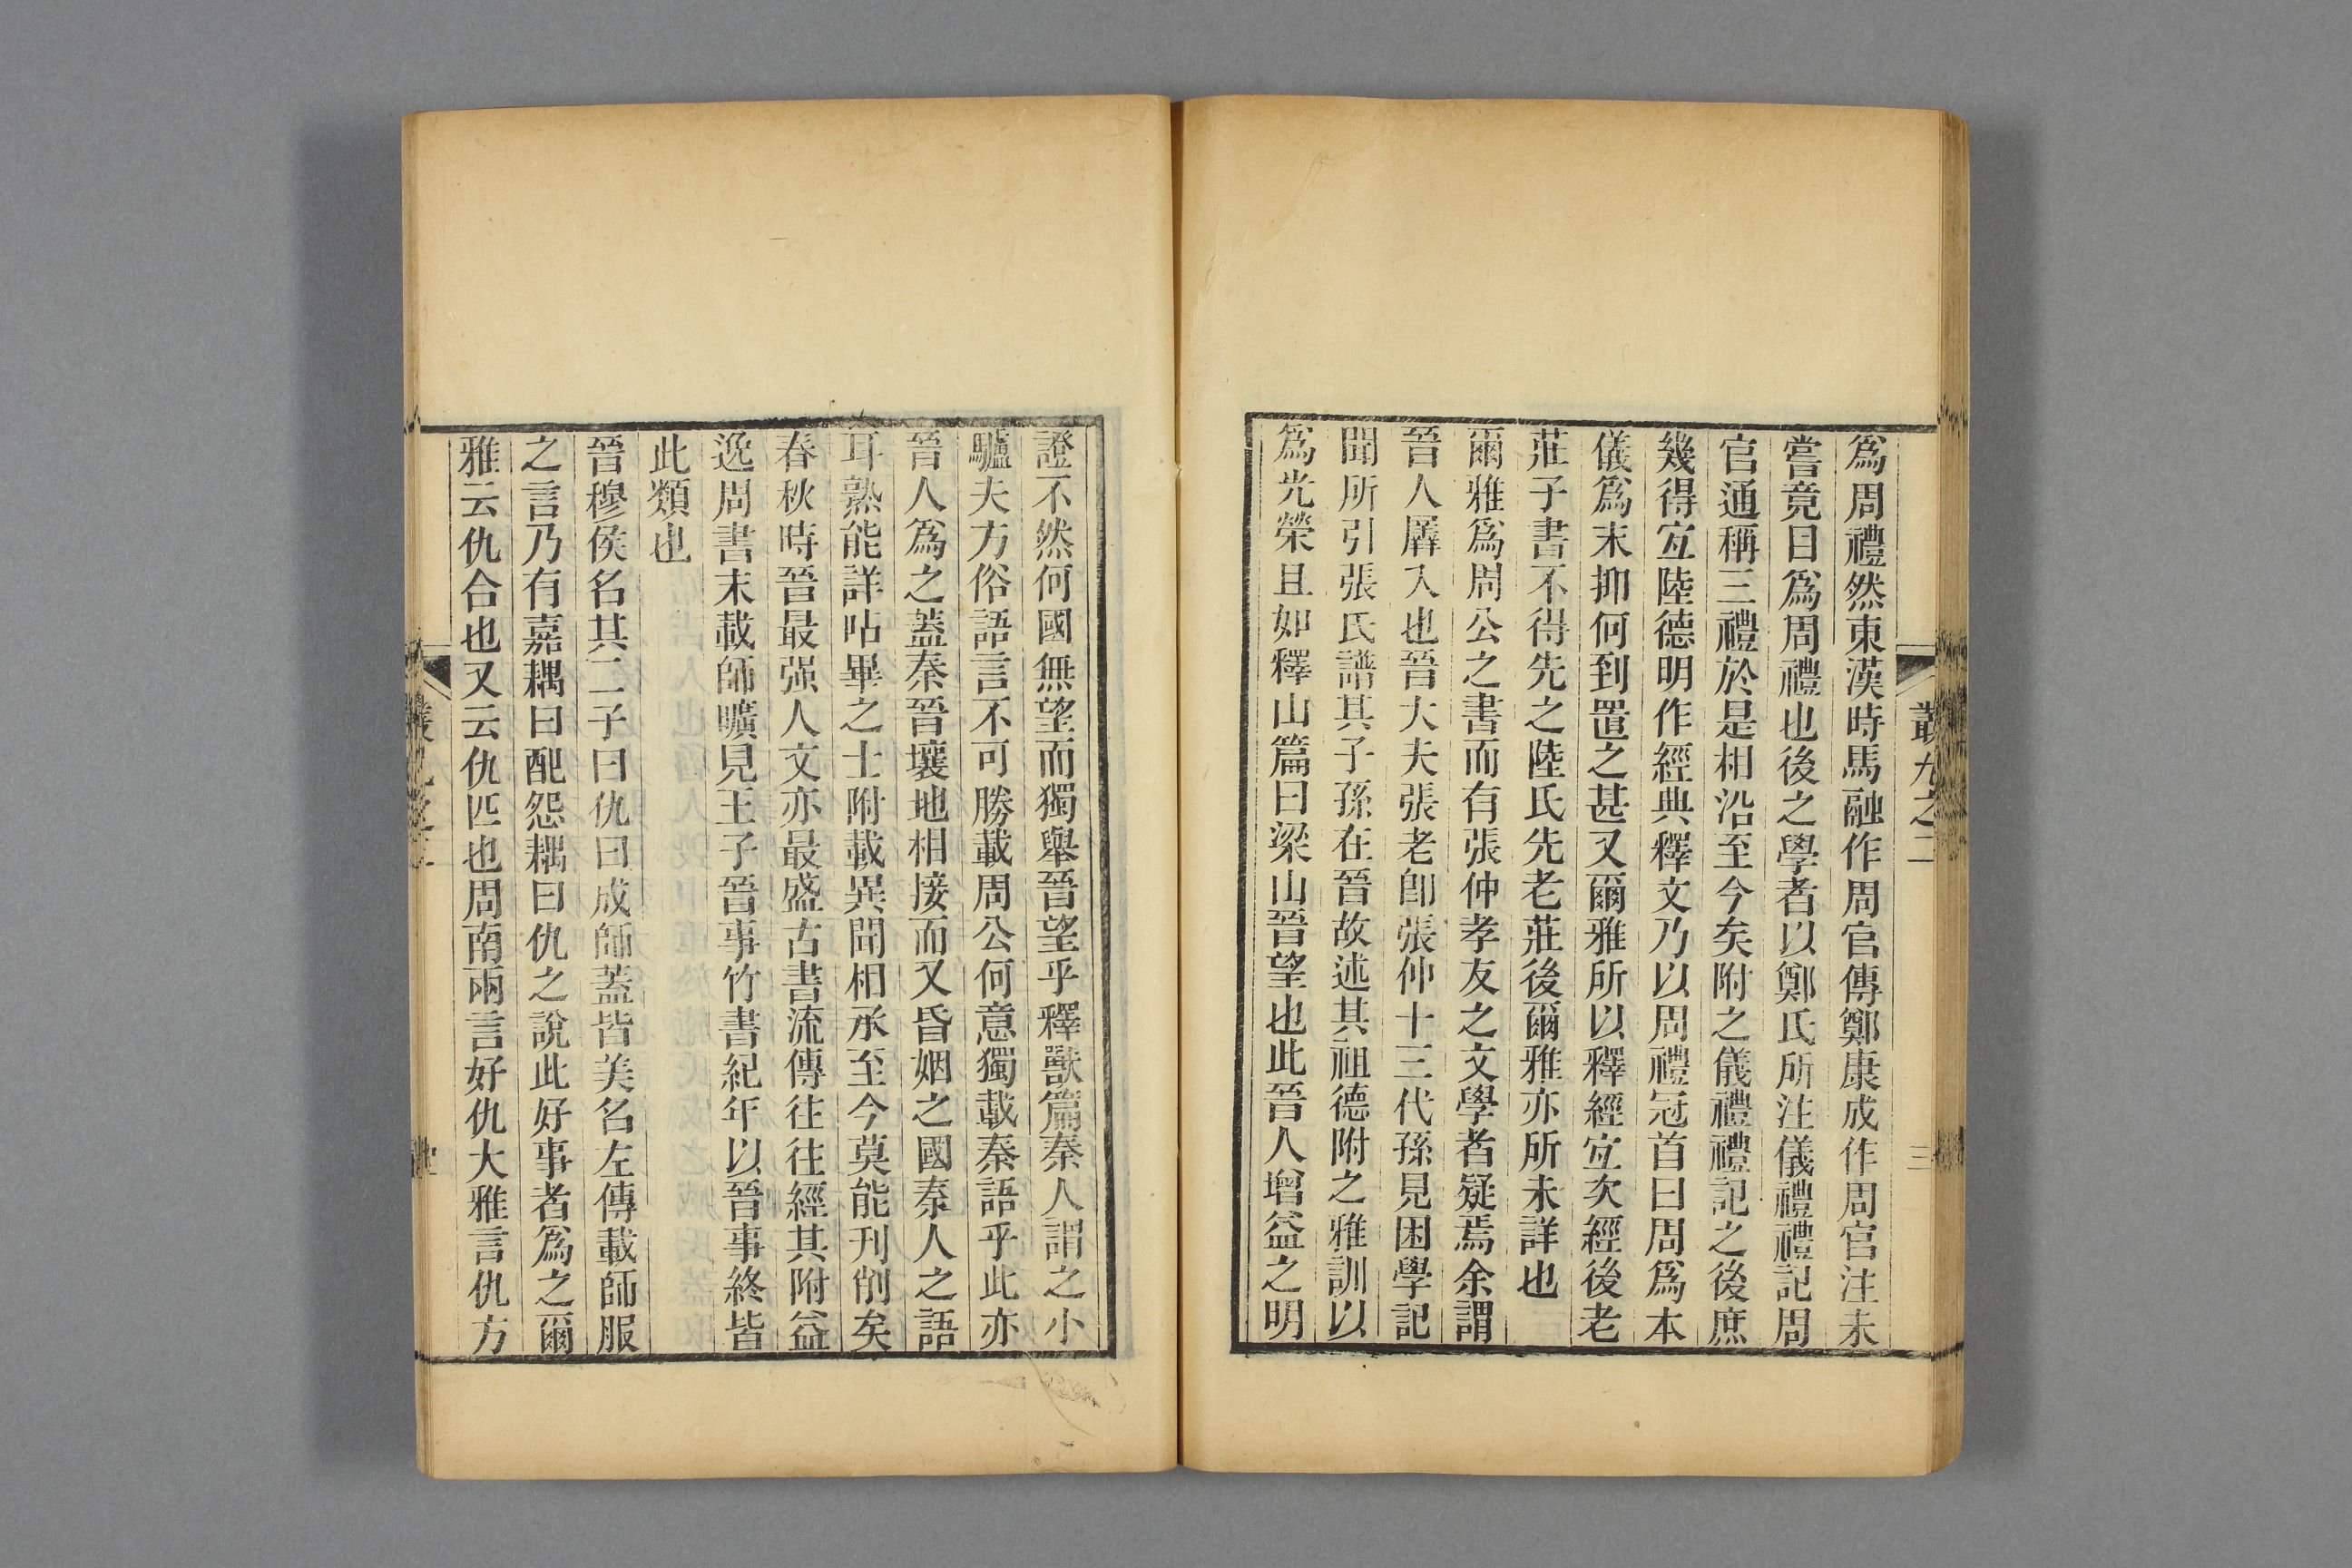 叢九之二
三
爲周禮然東漢時馬融作周官傳鄭康成作周官注未
嘗竟日爲周禮也後之學者以鄭氏所注儀禮禮記周
官通稱三禮於是相沿至今矣附之儀禮禮記之後庶
幾得宜陸德明作經典釋文乃以周禮冠首曰周爲本
儀爲末抑何到置之甚又爾雅所以釋經宜次經後老
莊子書不得先之陸氏先老莊後爾雅亦所未詳也
爾雅爲周公之書而有張仲孝友之文學者疑焉余謂
晉人羼入也晉大夫張老卽張仲十三代孫見困學記
聞所引張氏譜其子孫在晉故述其祖德附之雅訓以
爲光榮且如釋山篇曰梁山晉望也此晉人增益之明
證不然何國無望而獨舉晉望乎釋獸篇秦人謂之小
驢夫方俗語言不可勝載周公何意獨載秦語乎此亦
晉人爲之蓋秦晉壤地相接而又昏姻之國秦人之語
耳熟能詳呫畢之士附載異聞相承至今莫能刊削矣
春秋時晉最强人文亦最盛古書流傳往往經其附益
逸周書末載師曠見王子晉事竹書紀年以晉事終皆
此類也
晉穆侯名其二子曰仇曰成師蓋皆美名左傳載師服
之言乃有嘉耦曰配怨耦曰仇之說此好事者爲之爾
雅云仇合也又云仇匹也周南兩言好仇大雅言仇方